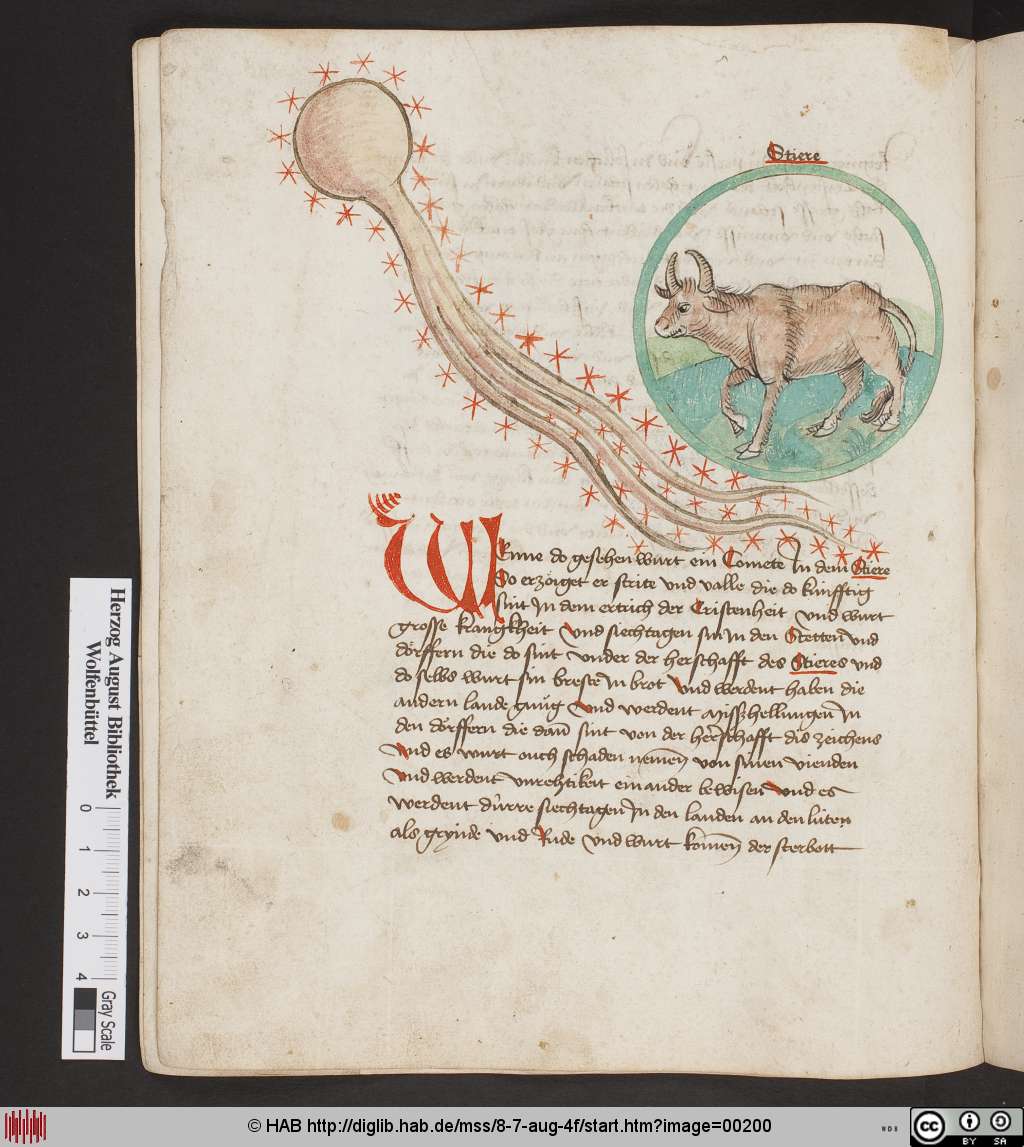 Stiere
WEnne do gesehen wurt ein Comete In dem Stiere
So erzöiget er strite vnd valle die do kúnfftig
sint In dem ertrich der Cristenheit vnd wurt
grosse kranckheit vnd siechtagen sin In den Stetten vnd
dörffern die do sint vnder der herschafft des Stieres vnd
do selbs wurt sin breste In brot vnd werdent haben die
andern lande gnůg vnd werdent Misszhellungen In
den dörffern die dañ sint von der herschafft dis zeichens
Vnd es wurt ouch schaden nemen̄ von sinen vienden
vnd werdent vnrehtikeit ein ander bewisen vnd es
werdent dúrre siechtagen In den landen an den lúten
als grynde vnd Rude vnd wurt komen̄ der sterbott
Herzog August Bibliothek
Wolfenbüttel
0 1 2 3 4
Gray Scale
© HAB http://diglib.hab.de/mss/8-7-aug-4f/start.htm?image=00200
WDB
cc BY SA